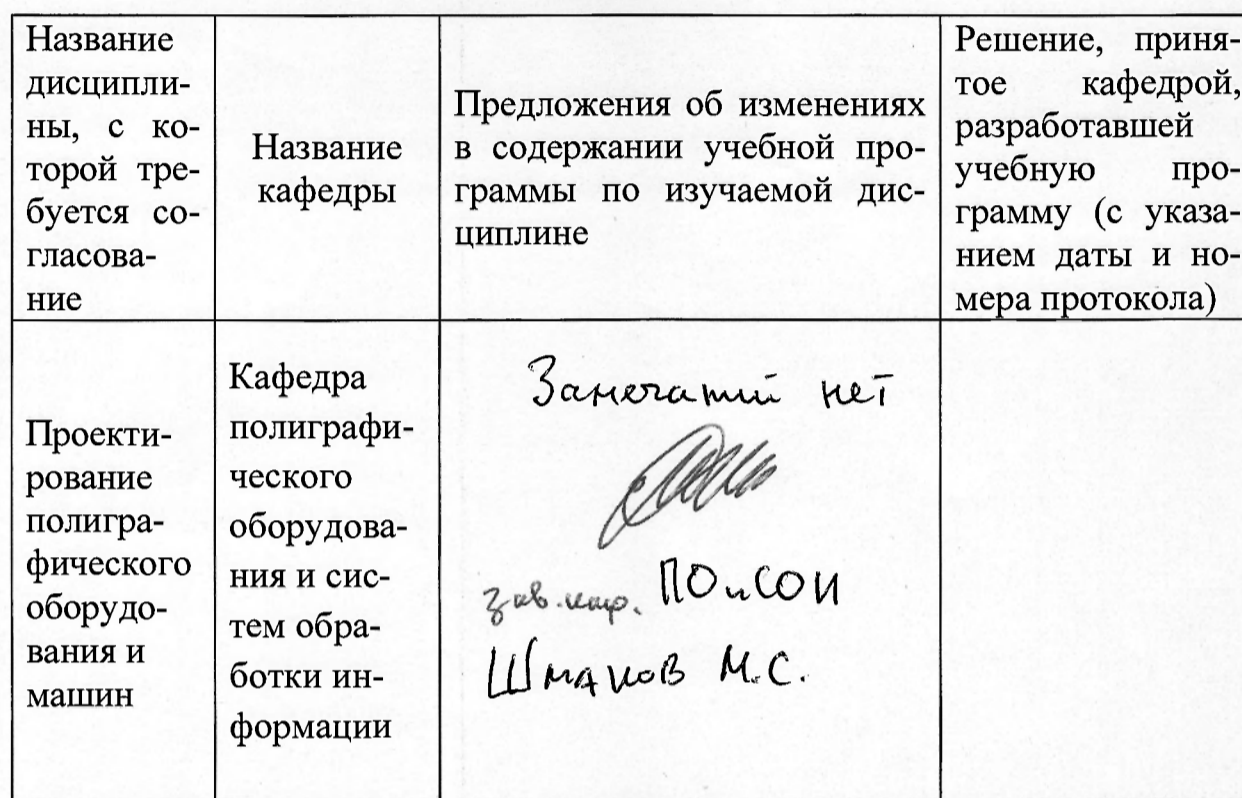 Название
дисципли-
ны, с ко-
торой тре-
буется со-
гласова-
ние
Название
кафедры
Предложения об изменениях
в содержании учебной про-
граммы по изучаемой дис-
циплине
Решение, приня-
тое кафедрой,
разработавшей
учебную про-
грамму (с указа-
нием даты и но-
мера протокола)
Проекти-
рование
полигра-
фического
оборудо-
вания и
машин
Кафедра
полиграфи-
ческого
оборудова-
ния и сис-
тем обра-
ботки ин-
формации
Замечаний нет
зав. каф. ПОиСОИ
Шмаков М.С.